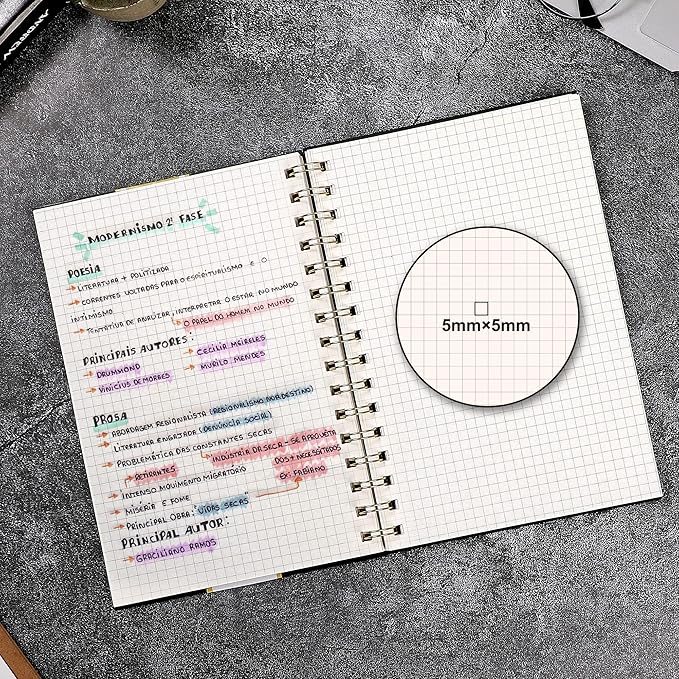 ANDREW
MODERNISMO 2ª FASE
POESIA
→ LITERATURA + POLITIZADA
→ CORRENTES VOLTADAS PARA O ESPIRITUALISMO E O
INTIMISMO
→ TENTATIVA DE ANALIZAR, INTERPRETAR O ESTAR NO MUNDO
→ O PAPEL DO HOMEM NO MUNDO
PRINCIPAIS AUTORES:
→ DRUMMOND → CECILIA MEIRELES
→ VINICIUS DE MORAES → MURILO MENDES
PROSA
→ ABORDAGEM REGIONALISTA (REGIONALISMO NORDESTINO)
→ LITERATURA ENGAJADA (DENÚNCIA SOCIAL)
→ PROBLEMÁTICA DAS CONSTANTES SECAS
→ RETIRANTES → INDÚSTRIA DA SECA - SE APROVEITA
→ INTENSO MOVIMENTO MIGRATÓRIO DOS + NECESSITADOS
→ MISÉRIA E FOME EX: FABIANO
→ PRINCIPAL OBRA: "VIDAS SECAS"
PRINCIPAL AUTOR:
→ GRACILIANO RAMOS
5mm×5mm